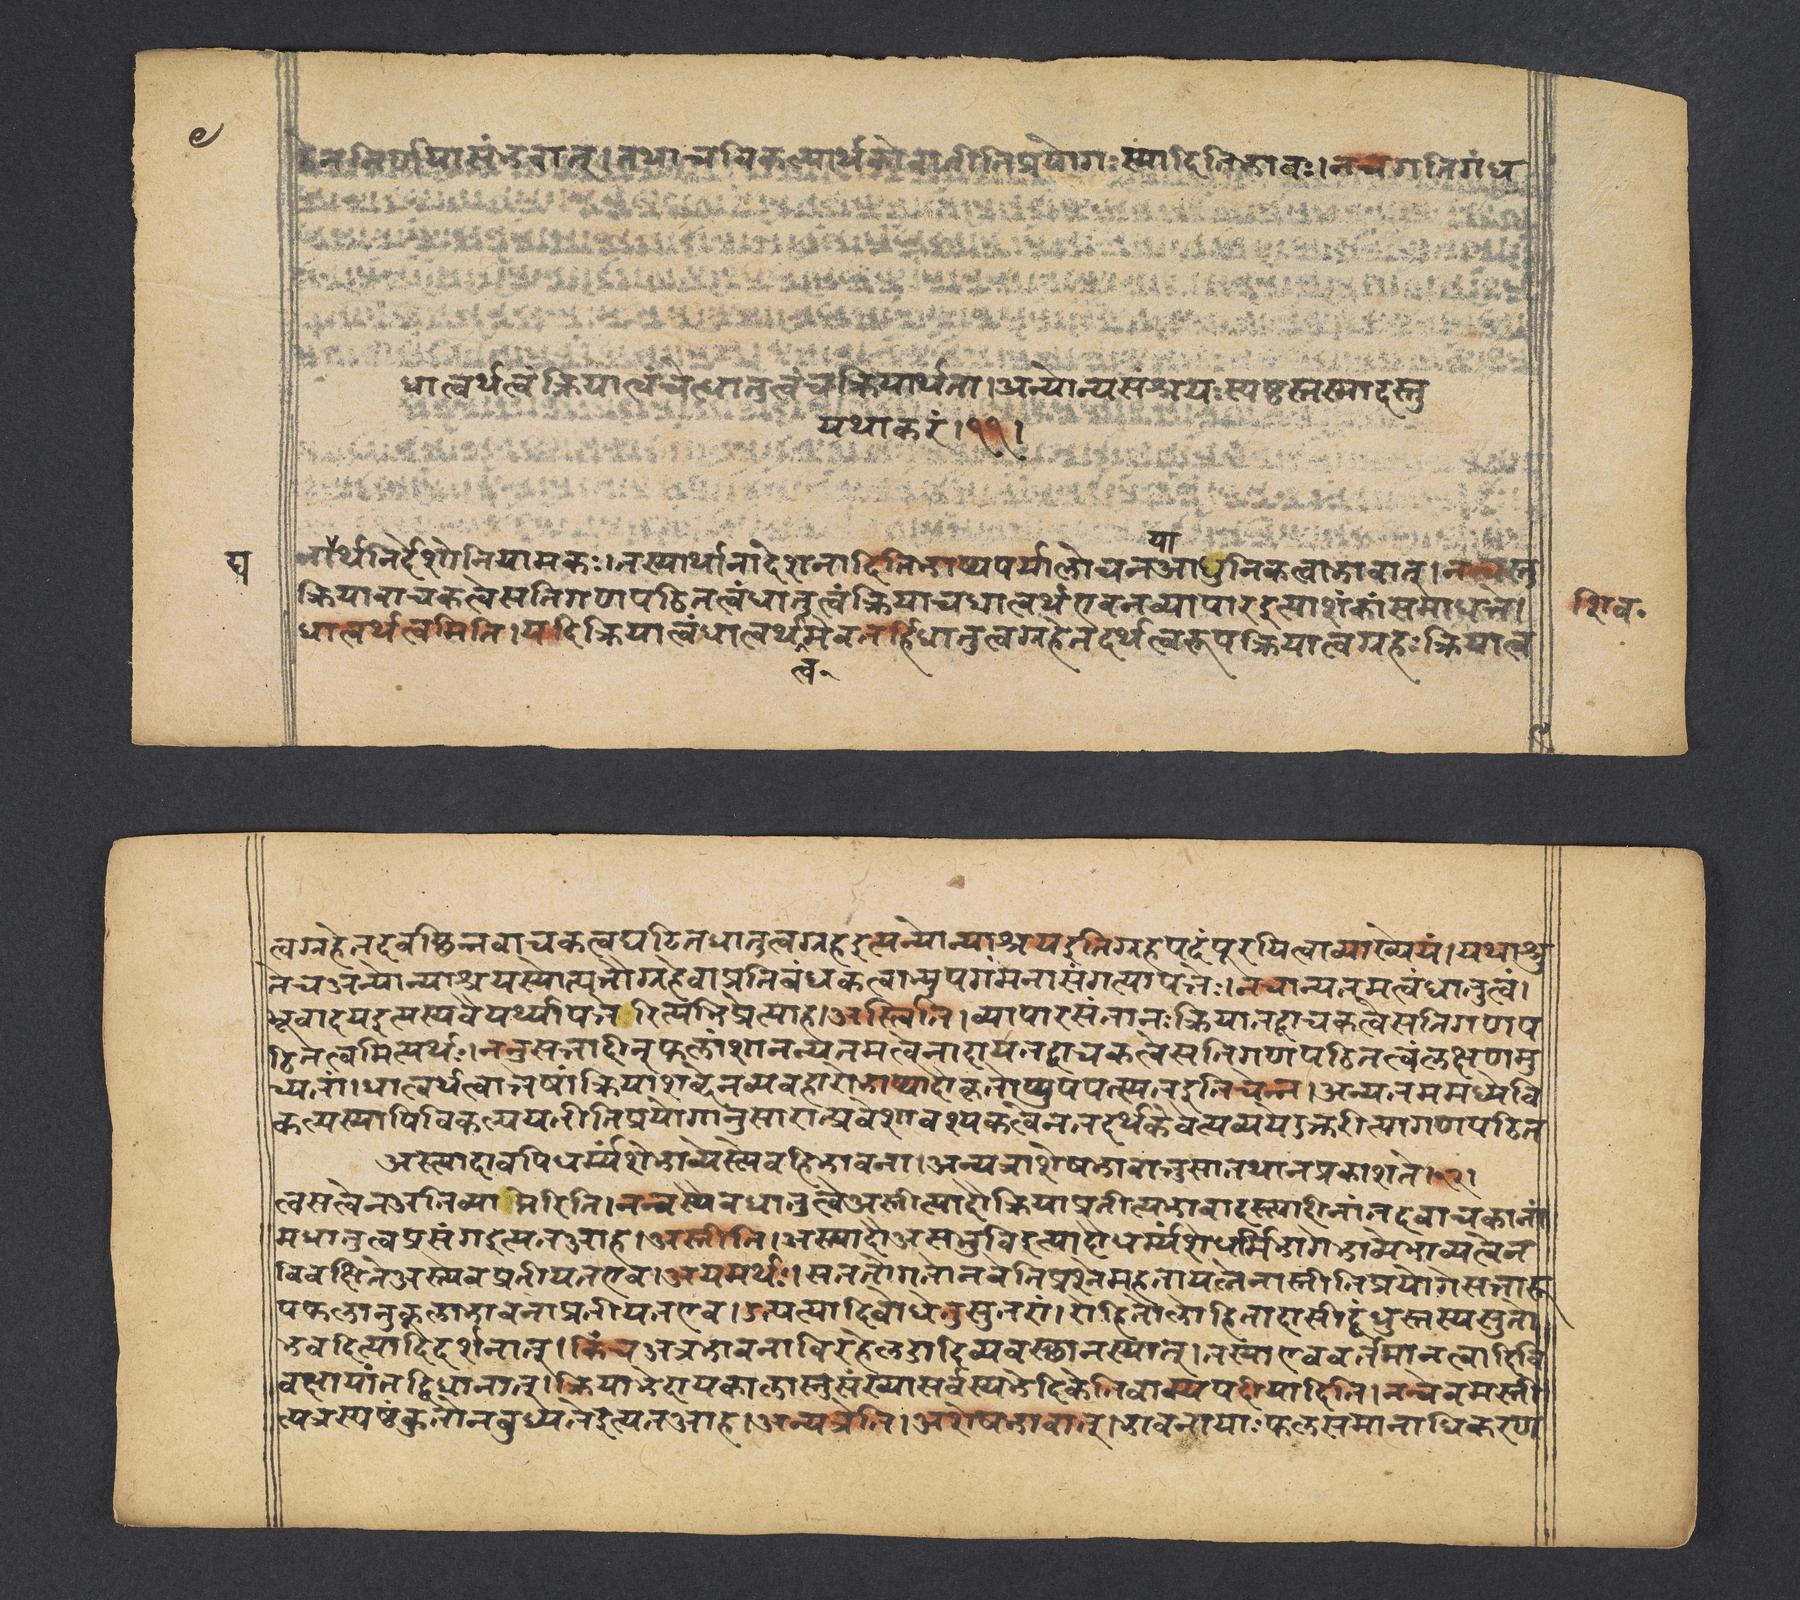 ९
तेननिपातपासंभवात्।तथाचविकल्पार्थकोवातीतिप्रयोगःस्यादितिभावः।नचगतिगंध
धात्वर्थत्वंक्रियात्वंचेद्धातुत्वंचक्रियार्थता।अन्योन्यसंश्रयःस्पष्टस्तस्मादस्तु
यथाकरं।११।
या
घ
नार्थनिर्देशोनियामकः।तस्यार्थानादेशनादितिभाष्यपर्यालोचनआधुनिकत्वाभावात्।नन्वस्तु
क्रियावाचकत्वेसतिगणपठितत्वंधातुत्वंक्रियाचधात्वर्थएवनव्यापारइत्याशंकांसमाधत्ते।
शिव॰
धात्वर्थत्वमिति।यदिक्रियात्वंधात्वर्थमेवतर्हिधातुत्वग्रहेतदर्थत्वरूपक्रियात्वग्रहःक्रियात्व
त्व॰
त्वग्रहेतदवछिन्नवाचकत्वघटितधातुत्वग्रहइत्यन्योन्याश्रयइतिग्रहपदंपूरयित्वाव्याख्येयं।यथाश्रु
तेचअन्योन्याश्रयस्योत्पत्तौग्रहेवाप्रतिबंधकत्वाभ्युपगमेनासंगत्यापत्तेः।नचान्यतमत्वंधातुत्वं।
भूवादयइत्यस्यवैयर्थ्यापत्तेरित्यभिप्रेत्याह।अस्त्विति।व्यापारसंतानःक्रियातद्वाचकत्वेसतिगणप
ठितत्वमित्यर्थः।ननुसत्तादीन्फलांशानन्यतमत्वेनादायतद्वाचकत्वेसतिगणपठितत्वंलक्षणमु
च्यतां।धात्वर्थत्वात्तेषांक्रियाशब्देनव्यवहारोभाष्यादौकृतोप्युपपत्स्यतइतिचेन्न।अन्यतममध्येवि
कल्पस्यापिविकल्पयतीतिप्रयोगानुसारात्प्रवेशावश्यकत्वेनतदर्थकेवेत्यव्ययेऽक्तरीत्यागणपठित
अस्त्यादावपिधर्म्यंशेभाव्येस्त्येवहिभावना।अन्यत्राशेषभावात्तुसातथानप्रकाशते।१२।
त्वसत्वेनअतिव्याप्तिरिति।नन्वस्यैवधातुत्वेअस्तीत्यादौक्रियाप्रतीत्यभावादस्त्यादीनांतदवाचकानां
मधातुत्वप्रसंगइत्यतआह।अस्तीति।अस्त्यादौअसभुविइत्यादौधर्म्यंशेधर्मिभागेभाव्येभाव्यत्वेन
विवक्षितेअस्त्येवप्रतीयतएव।अयमर्थः।सततोगतोनवेतिप्रश्नेमहतायत्नेनास्तीतिप्रयोगेसत्तारू
पफलानुकूलाभावनाप्रतीयतएव।उत्पत्यादिबोधेतुसुतरां।रोहितोलोहितादासीद्धुंधुस्तस्यसुतो
भवदित्यादिदर्शनात्।किंचअत्रभावनाविरहेलडादिव्यवस्थानस्यात्।तस्याएववर्तमानत्वादिवि
वक्षायांतद्विधानात्।क्रियाभेदायकालस्तुसंख्यासर्वस्यभेदिकेतिवाक्यपदीयादिति।नन्वेवमस्ती
त्यत्रस्पष्टंकुतोनबुध्यतेइत्यतआह।अन्यत्रेति।अशेषभावात्।भावनायाःफलसमानाधिकरण